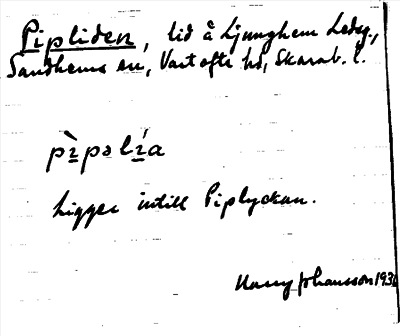 Pipliden, lid å Ljunghem Ledsg.,
Sandhems sn, Vartofta hd, Skarab. l.
pìpəlía
Ligger intill Piplyckan.
Harry Johansson 193